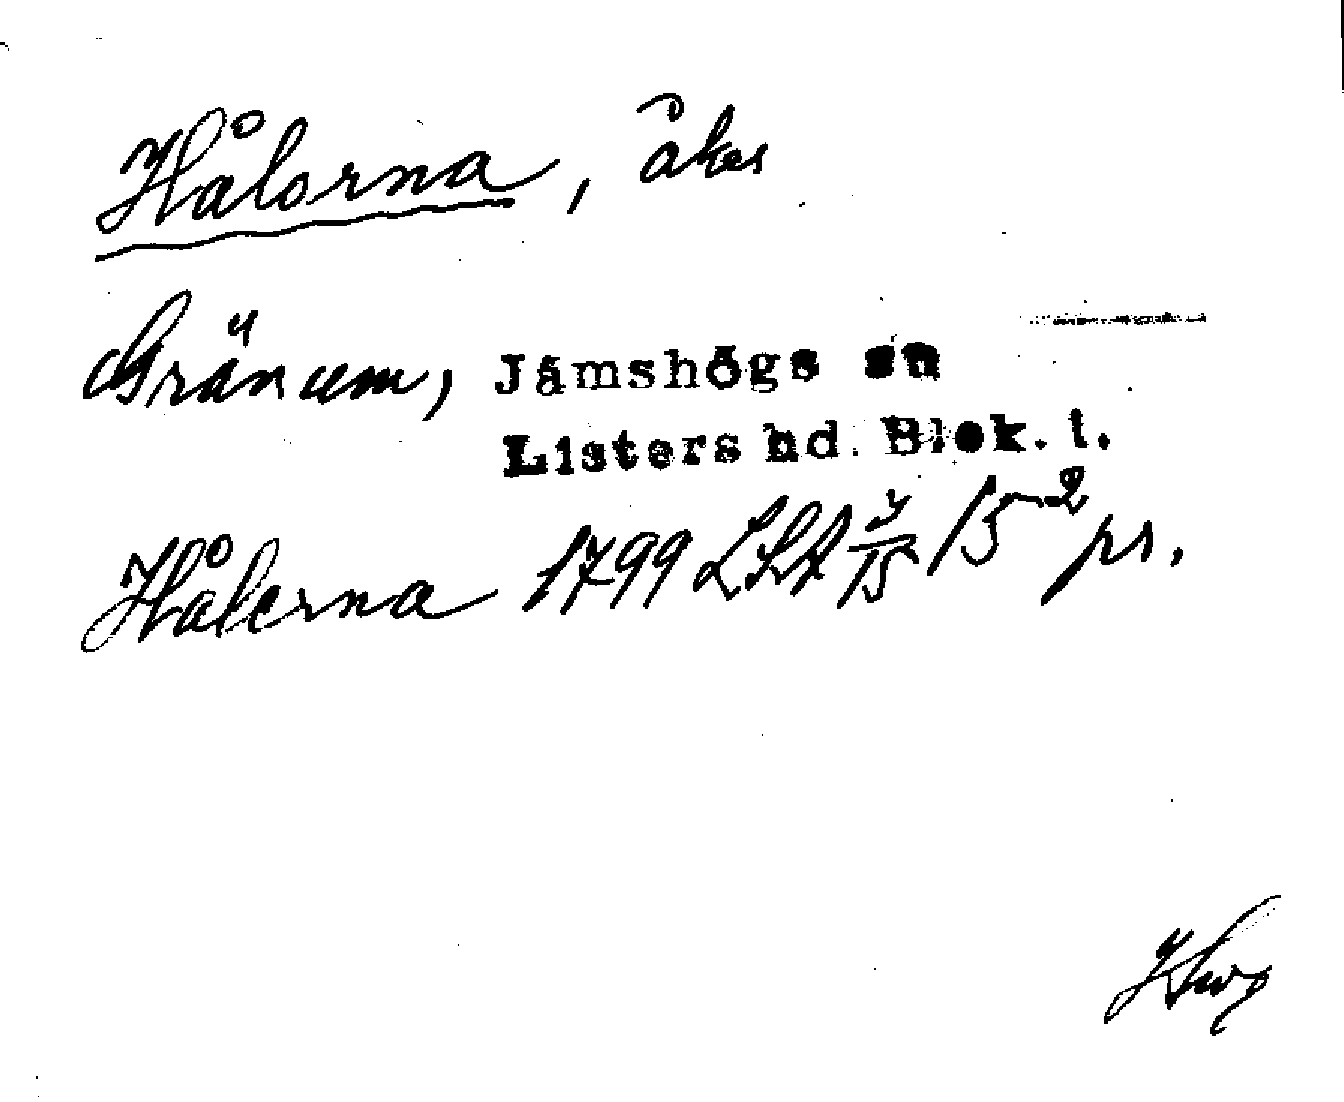 Hålorna, åker
Gränum, Jämshögs sn
Listers hd. Blek. l.
Hålerna 1799 LSA J/15 15-2 pr.